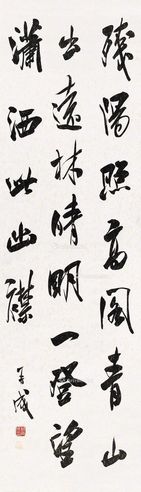 残陽照高閣青山
出遠林晴明一登望
瀟洒此幽襟
成